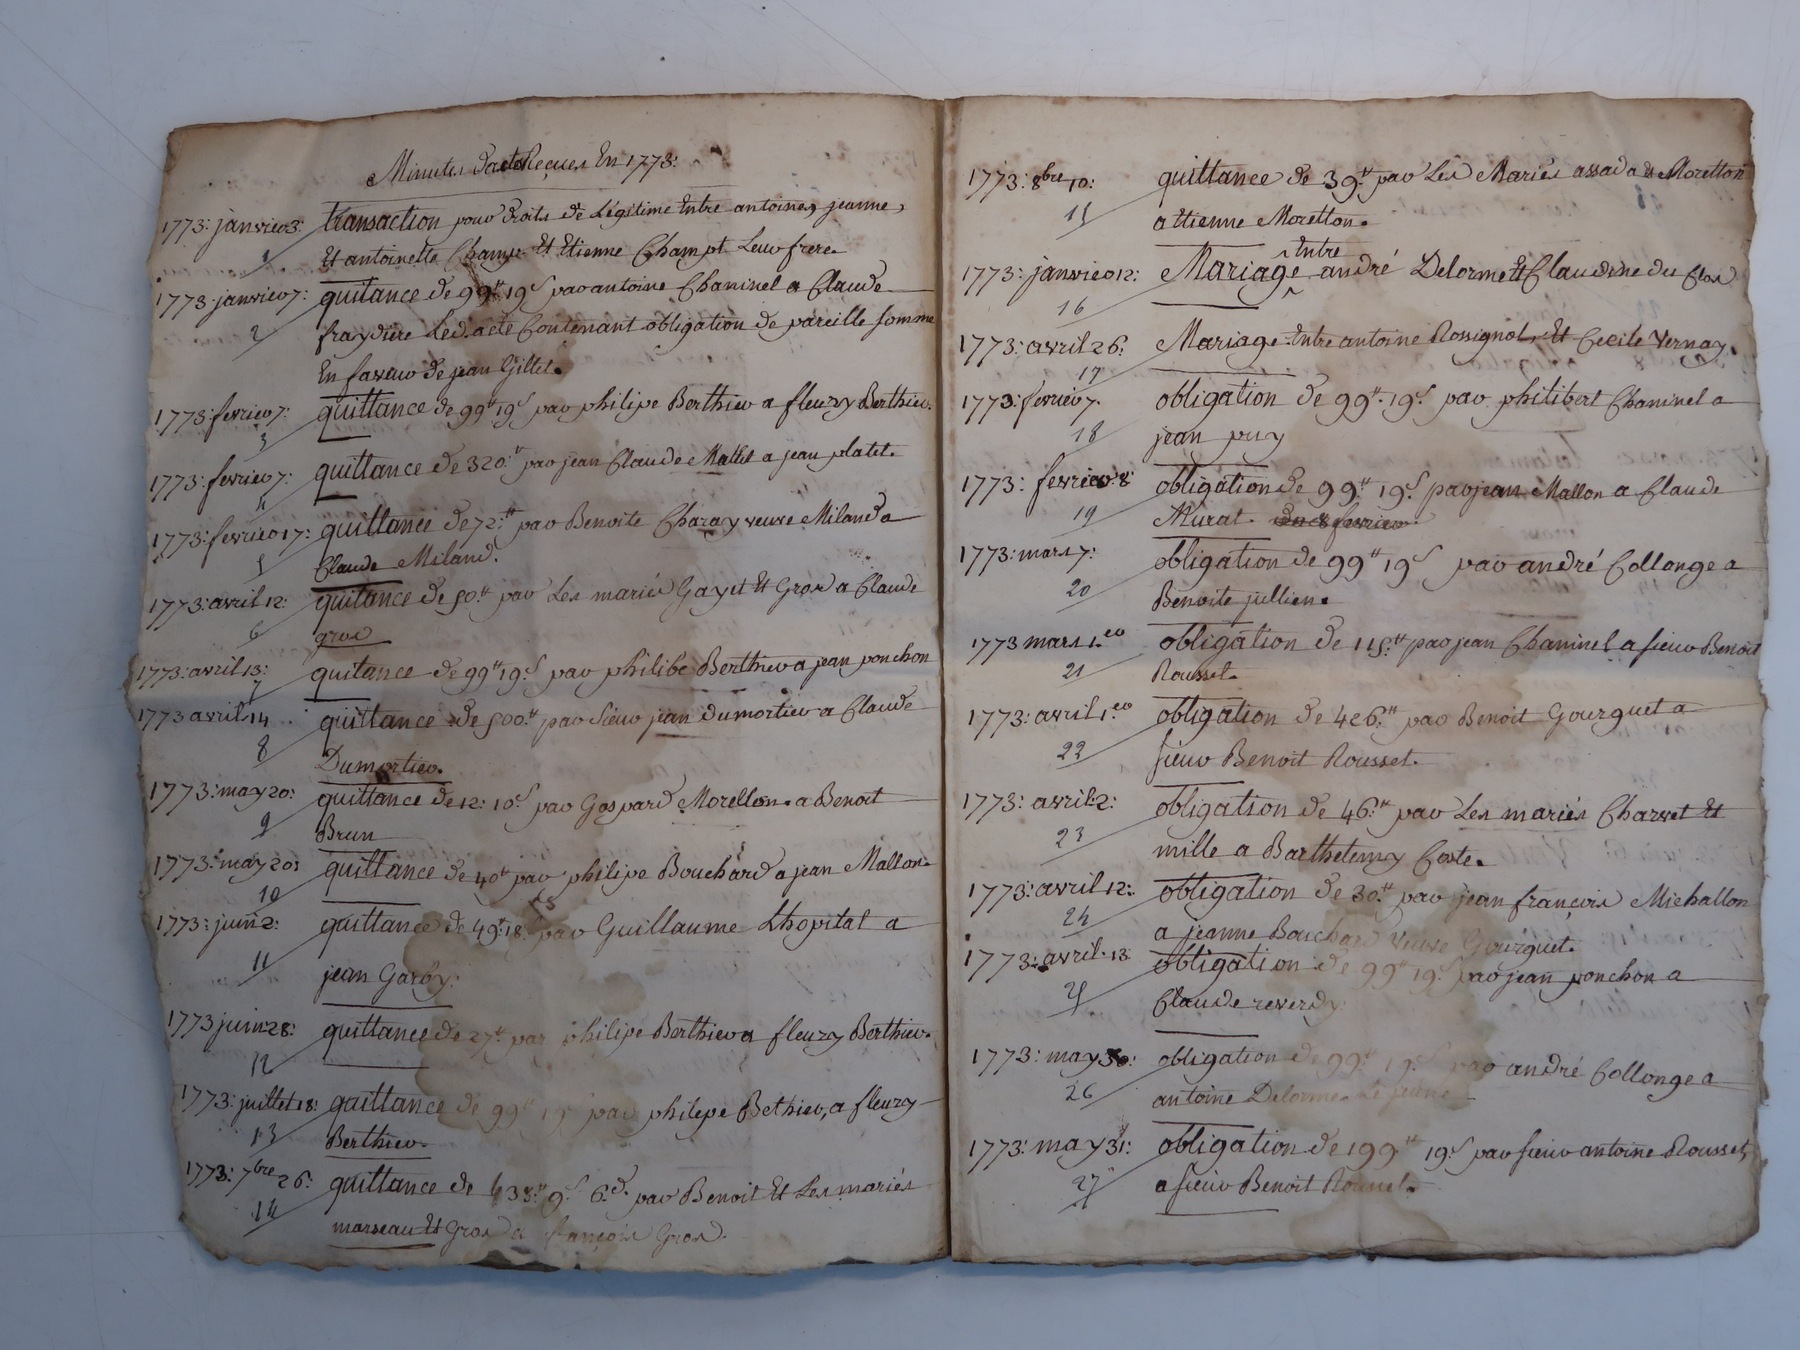 Minutes d'actes Reçues En 1773:
1773: janvier 3: transaction pour droits de Légitime Entre antoine, jeanne,
1 Et antoinette Champt Et Etienne Champt Leur frere.
1773 janvier 7: quitance de 99tt 19s par antoine Chaninel a Claude
2 fraydiere Led. acte Contenant obligation de pareille somme
En faveur de jean Gillet.
1773: fevrier 7: quittance de 99tt 19s par philipe Berthier a fleury Berthier.
3
1773: fevrier 7: quittance de 320.tt par jean Claude Mattet a jean platet.
4
1773: fevrier 17: quittance de 72:tt par Benoite Charay veuve Miland a
5 Claude Miland.
1773: avril 12: quitance de 50.tt par Les mariés Gayet Et Gros a Claude
6 gros
1773: avril 13: quitance de 99tt 19s par philibe Berthier a jean ponchon
7
1773 avril 14 quittance de 500.tt par sieur jean dumortier a Claude
8 Dumortier.
1773: may 20: quittance de 12: 10s par Gaspard Morellon. a Benoit
9 Brun
1773: may 20: quittance de 40tt par philipe Bouchard a jean Mallon.
10
1773: juin 2: quittance de 49: 18s par Guillaume Lhopital a
11 jean Garby:
1773 juin 28: quittance de 27tt par philipe Berthier a fleury Berthier.
12
1773: juillet 18: quittance de 99tt 19s par philipe Bethier, a fleury
13 Berthier.
1773: 7bre 26: quittance de 438.tt 9s 6.d. par Benoit Et Les mariés
14 marseau Et Gros a françois Gros.
1773: 8bre 10: quittance de 39.tt par Les Mariés assada et Moretton
15 a ttienne Moretton.
1773: janvier 12: Mariage Entre andré Delorme Et Claudine du Clos
16
1773: avril 26: Mariage Entre antoine Rossignol, Et Cecile Vernay.
17
1773: fevrier 7. obligation de 99tt. 19s. par philibert Chaninel a
18 jean puy
1773: fevrier 8 obligation de 99tt 19s. par jean Mallon a Claude
19 Murat. du 8 fevrier.
1773: mars 7: obligation de 99tt 19s par andré Collonge a
20 Benoite jullien.
1773 mars 1.er obligation de 115.tt par jean Chaninel a sieur Benoit
21 Rousset.
1773: avril 1.er obligation de 426.tt par Benoit Gourguet a
22 sieur Benoit Rousset.
1773: avril 2: obligation de 46.tt par Les mariés Charvet Et
23 mille a Barthelemy Coste.
1773: avril 12: obligation de 30.tt par jean françois Michallon
24 a jeanne Bouchard veuve Gourguet.
1773: avril. 13 obligation de 99tt 19s par jean ponchon a
25 Claude reverdy.
1773: may 30: obligation de 99tt 19s. par andré Collonge a
26 antoine Delorme Le jeune
1773: may 31: obligation de 199tt 19s. par sieur antoine Rousset,
27 a sieur Benoit Rousset.